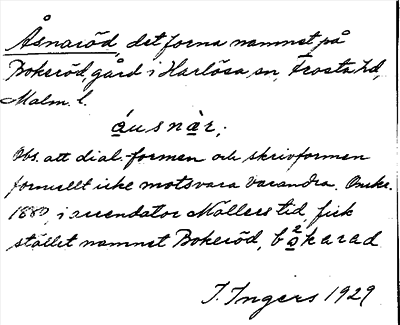 Åsnaröd, det forna namnet på
Bokeröd, gård i Harlösa sn, Frosta hd,
Malm. l.
áusnàr;
Obs. att dial.formen och skrivformen
formellt icke motsvara varandra. Omkr.
1880, i arrendator Möllers tid, fick
stället namnet Bokeröd, bokarad
I. Ingers 1929